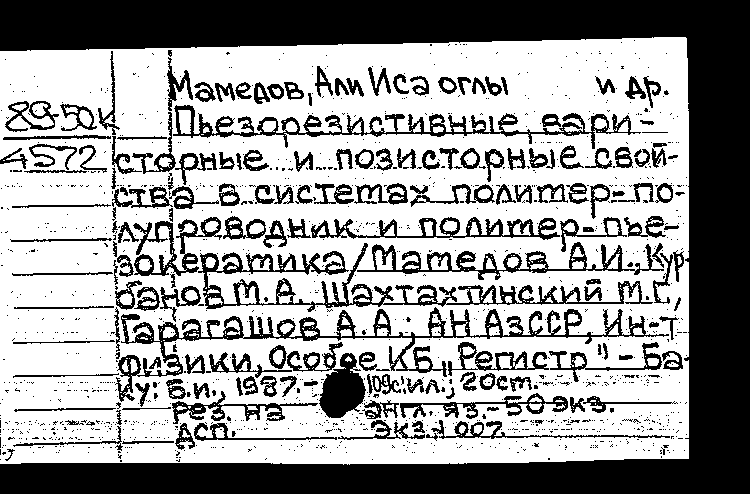 Мамедов, Али Иса оглы и др.
89-50к Пьезорезистивные, вари-
4572 сторные и позисторные свой-
ства в системах полимер-по-
лупроводник и полимер-пье-
зокерамика/Мамедов А.И., Кур-
банов М.А., Шахтахтинский М.Г.,
Гарагашов А.А.; АН АзССР, Ин-т
физики, Особое КБ „Регистр". - Ба-
ку: Б.и., 1987. - 109с: ил.; 20 см. -
Рез. на англ. яз. - 50 экз.
ДСП. Экз. 1 007.